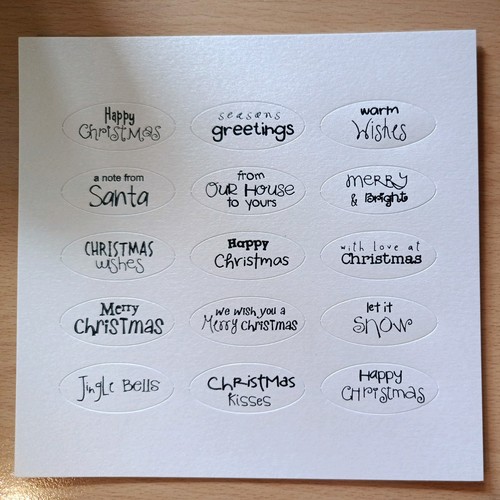 Happy
Christmas
seasons
greetings
warm
Wishes
a note from
Santa
from
Our House
to yours
merry
& Bright
CHRISTMAS
wishes
Happy
Christmas
with love at
Christmas
Merry
Christmas
we wish you a
Merry Christmas
let it
snow
Jingle Bells
Christmas
kisses
Happy
Christmas